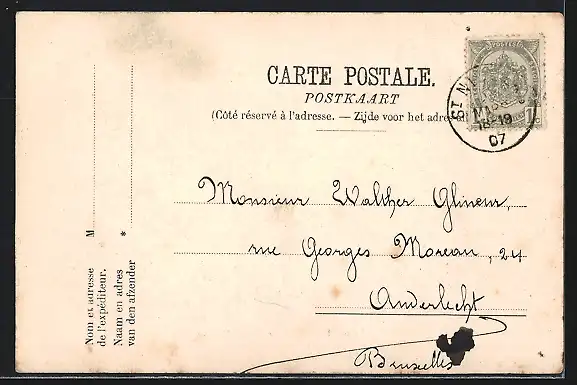 CARTE POSTALE.
POSTKAART
(Côté réservé à l'adresse. — Zijde voor het adres
Monsieur Walther Glineur,
rue Georges Moreau, 24
Anderlecht
Bruxelles
M
*
Nom et adresse
de l'expéditeur.
Naam en adres
van den afzender
ST N
18-19
07